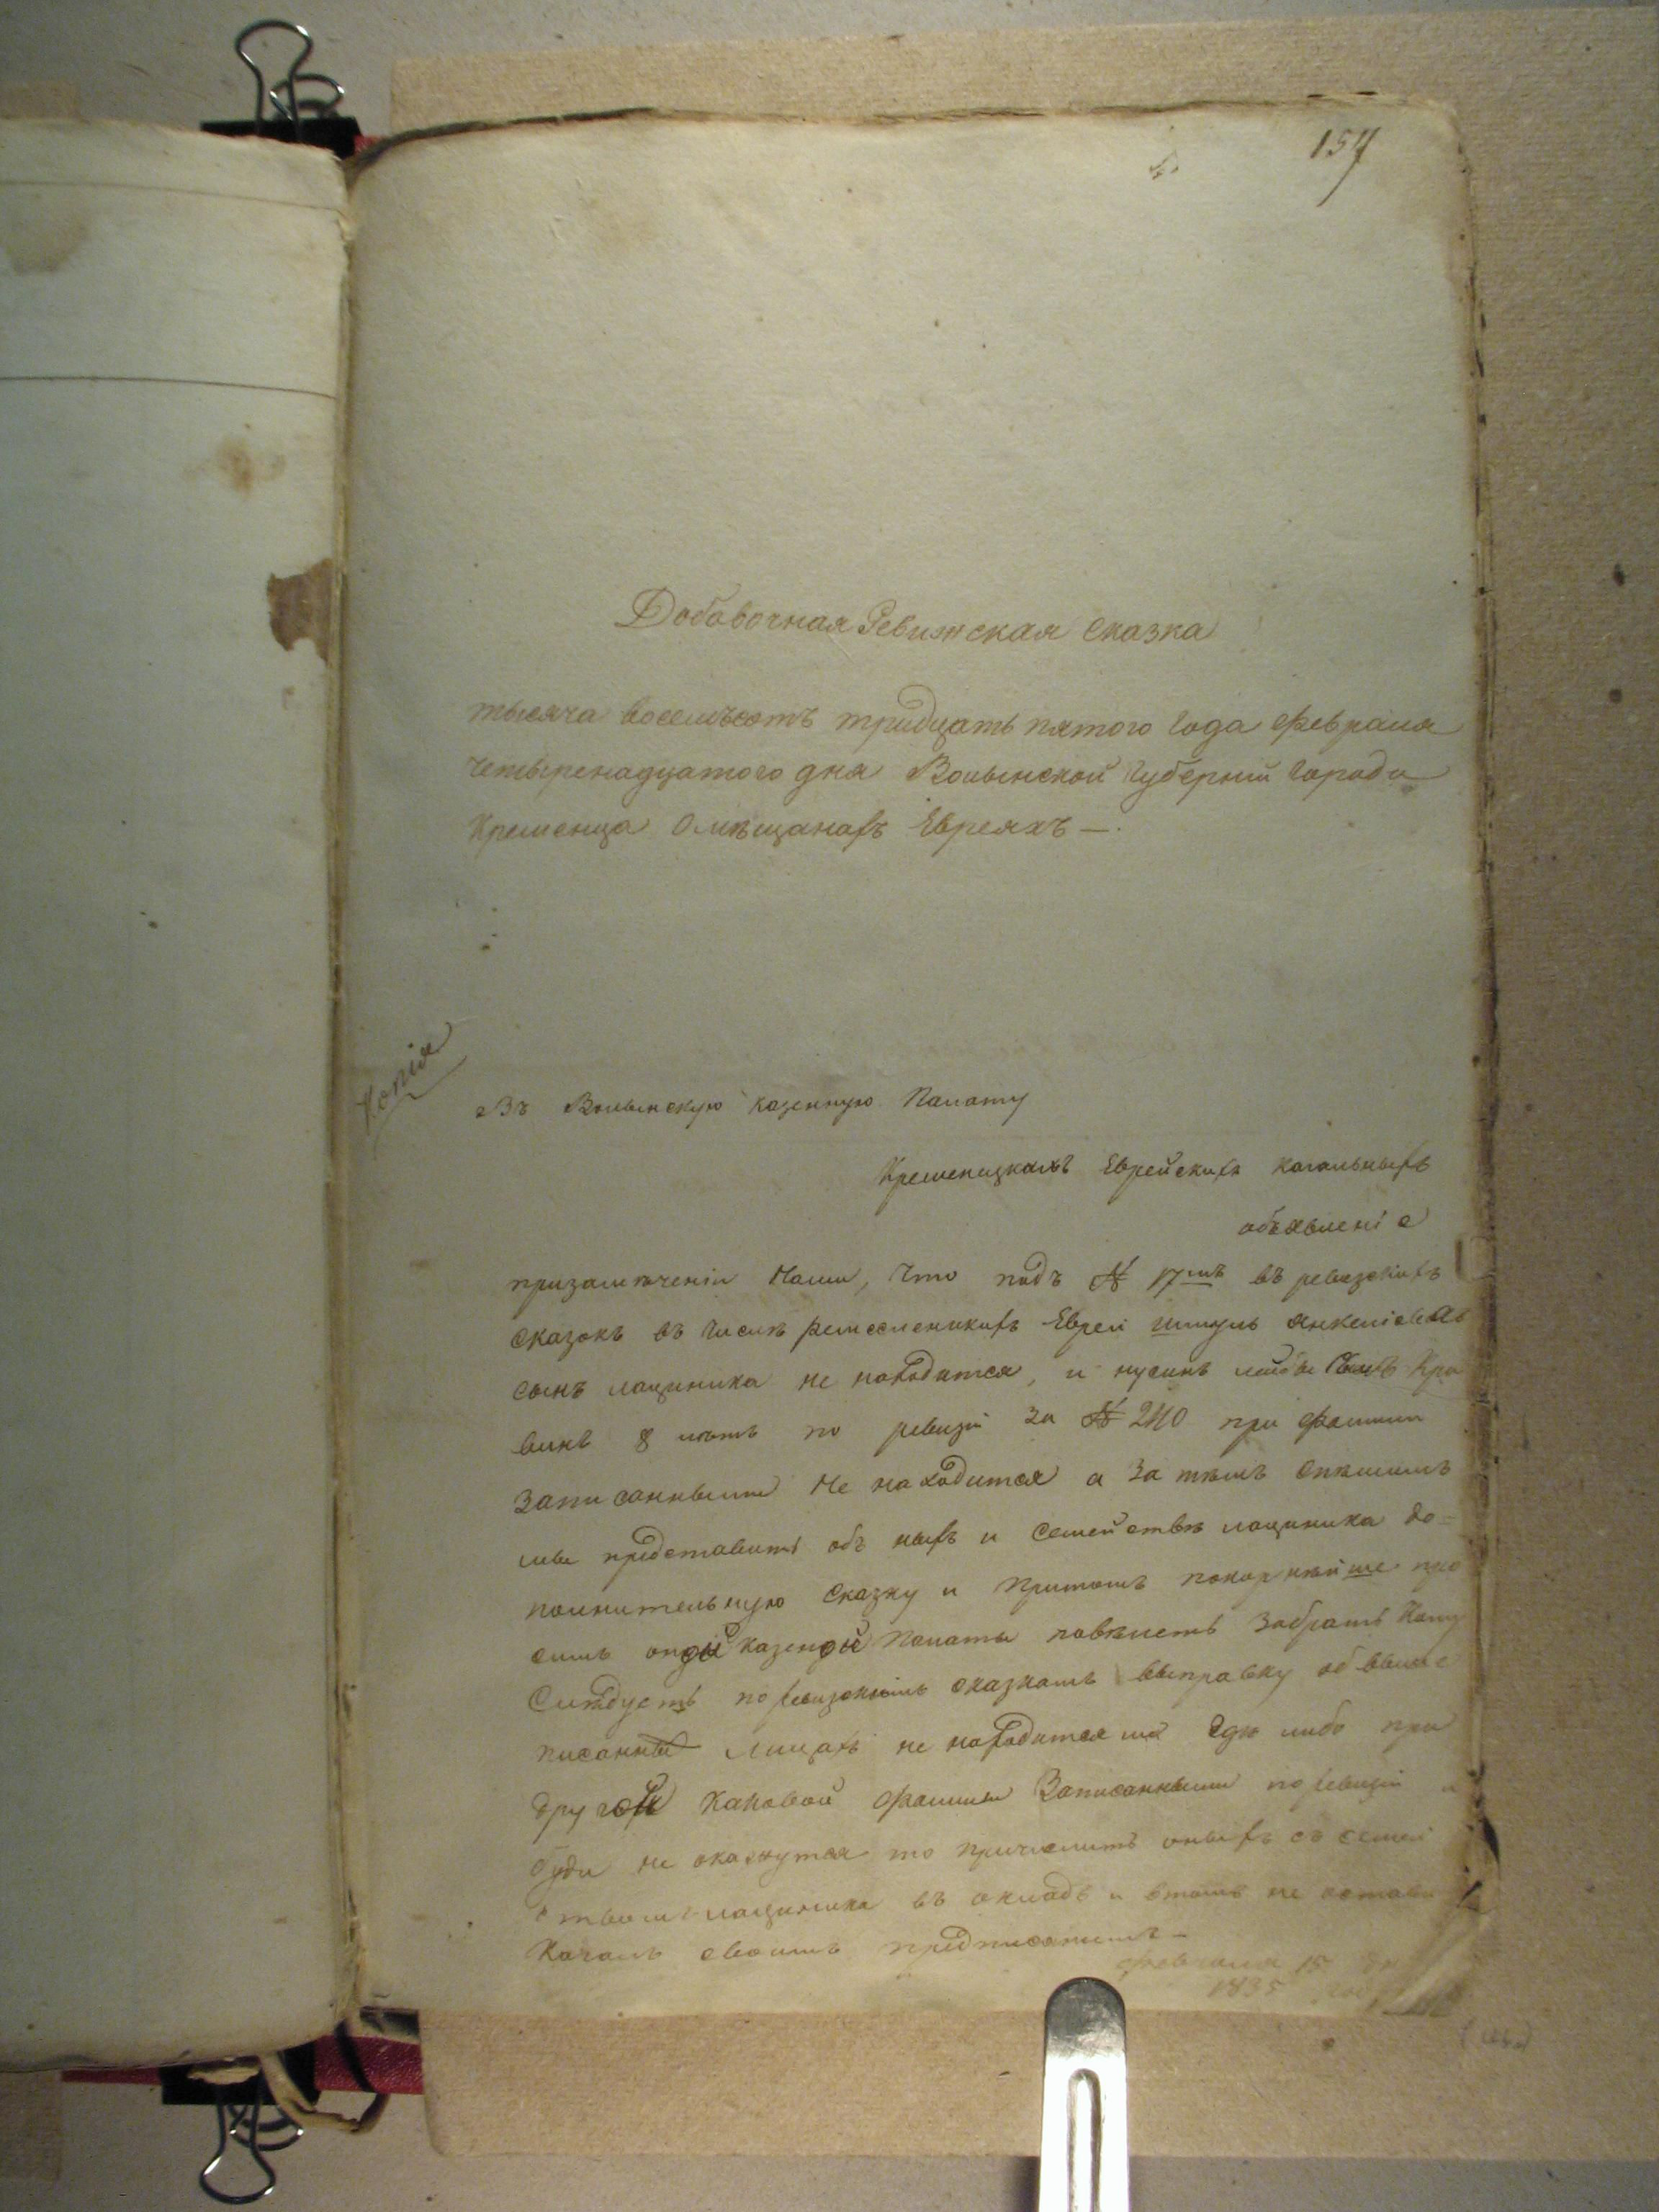 157
Добавочная Ревизская Сказка
тысяча восемьсотъ тридцать пятого года февраля
Четыренадцатого дня Волынской Губерніи города
Кременца О мѣщанахъ Евреяхъ —.
Копія
Въ Волынскую казенную Палату
Кременецкихъ Еврейскихъ кагальныхъ
объявленіе
призамѣченіи Нами, Что подъ № 17мъ въ ревизскихъ
сказокъ въ Числѣ Ремесленикихъ Еврей Шмуль Янкеліовъ
сынъ лациника не находится, и нусинъ лейбы Кра
викъ 8 лѣтъ по ревизіи за № 240 при фамиліи
Записанными Не находится а За тѣмъ спѣшимъ
мы представить объ ныхъ и Семействѣ лациника до=
полнительную Сказку и Притомъ покорнѣйше про
симъ оной Казеной Палаты повѣлеть Забрать Кому
Слѣдуетъ по ревизскимъ сказкамъ выправку об выше
писанные Лицахъ не находится ли гдѣ либо при
другой Каковой фамиліи Записанными по ревизіи и
буди не окажутся то причислить оныхъ съ семей
ствомъ лациника въ окладъ и втомъ не остави
Кагалъ своимъ предписаніемъ —
февраля 15 дн
1835 года